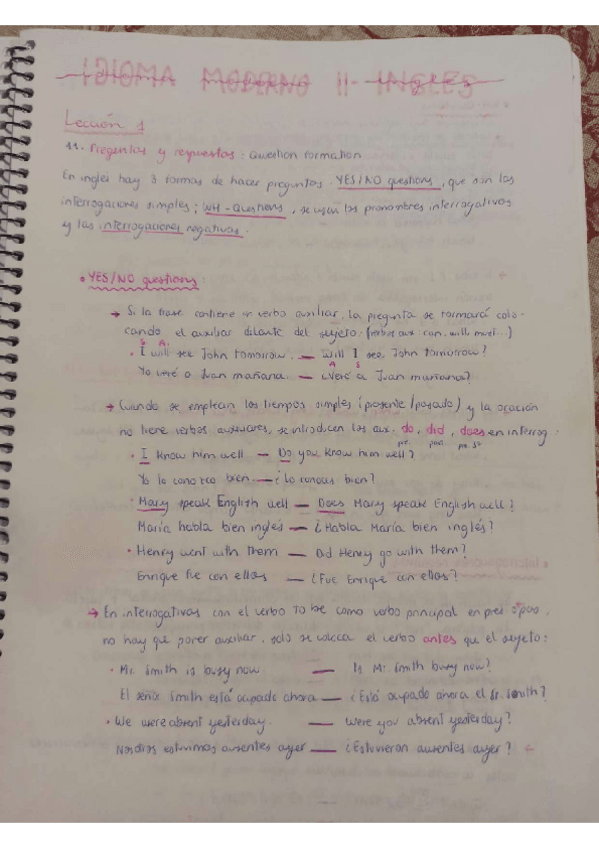 IDIOMA MODERNO II- INGLES
Lección 1
11. Preguntas y respuestas: Question formation
En ingles hay 3 formas de hacer preguntas. YES/NO questions, que son las
interrogaciones simples; WH-Questions, se usan los pronombres interrogativos
y las interrogaciones negativas.
• YES/NO questions:
→ Si la frase contiene un verbo auxiliar, la pregunta se formará colo-
cando el auxiliar delante del sujeto. (verbos aux can, will, must..)
S A
• I will see John tomorrow. — Will I see John tomorrow?
A S
Yo veré a Juan mañana. — ¿Veré a Juan mañana?
→ Cuando se emplean los tiempos simples (presente/pasado) y la oración
no tiene verbos auxiliares, se introducen los aux. do, did, does en interrog:
pre. pas.
• I know him well — Do you know him well?
Yo lo conozco bien — ¿Lo conoces bien?
• Mary speak English well — Does Mary speak English well?
María habla bien inglés — ¿Habla María bien inglés?
• Henry went with them — Did Henry go with them?
Enrique fue con ellos — ¿Fue Enrique con ellos?
→ En interrogativas con el verbo to be como verbo principal en pres o pas,
no hay que poner auxiliar, solo se coloca el verbo antes que el sujeto:
• Mr. Smith is busy now — Is Mr. Smith busy now?
El señor Smith está ocupado ahora — ¿Está ocupado ahora el Sr. Smith?
• We were absent yesterday. — Were you absent yesterday?
Nosotros estuvimos ausentes ayer — ¿Estuvieron ausentes ayer?